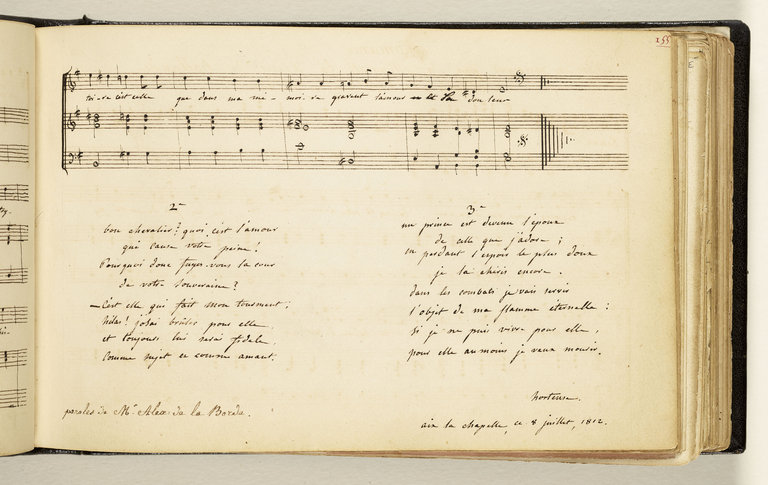 155
toi-re c'est celle que dans ma mé-moi-re gravent l'amour et la douleur
2e
bon chevalier? quoi c'est l'amour
qui cause votre peine!
Pourquoi donc fuyez-vous la cour
de votre souveraine?
— C'est elle qui fait mon tourment;
hélas! j'osai brûler pour elle
et toujours lui serai fidele
comme sujet et comme amant.
3e
un prince est devenu l'époux
de celle que j'adore;
en perdant l'espoir le plus doux
je la chéris encore.
dans les combats je vais servir
l'objet de ma flamme éternelle:
si je ne puis vivre pour elle,
pour elle au moins je veux mourir.
hortense.
paroles de Mr Alex de la Borde.
aix la chapelle, ce 8 juillet, 1812.